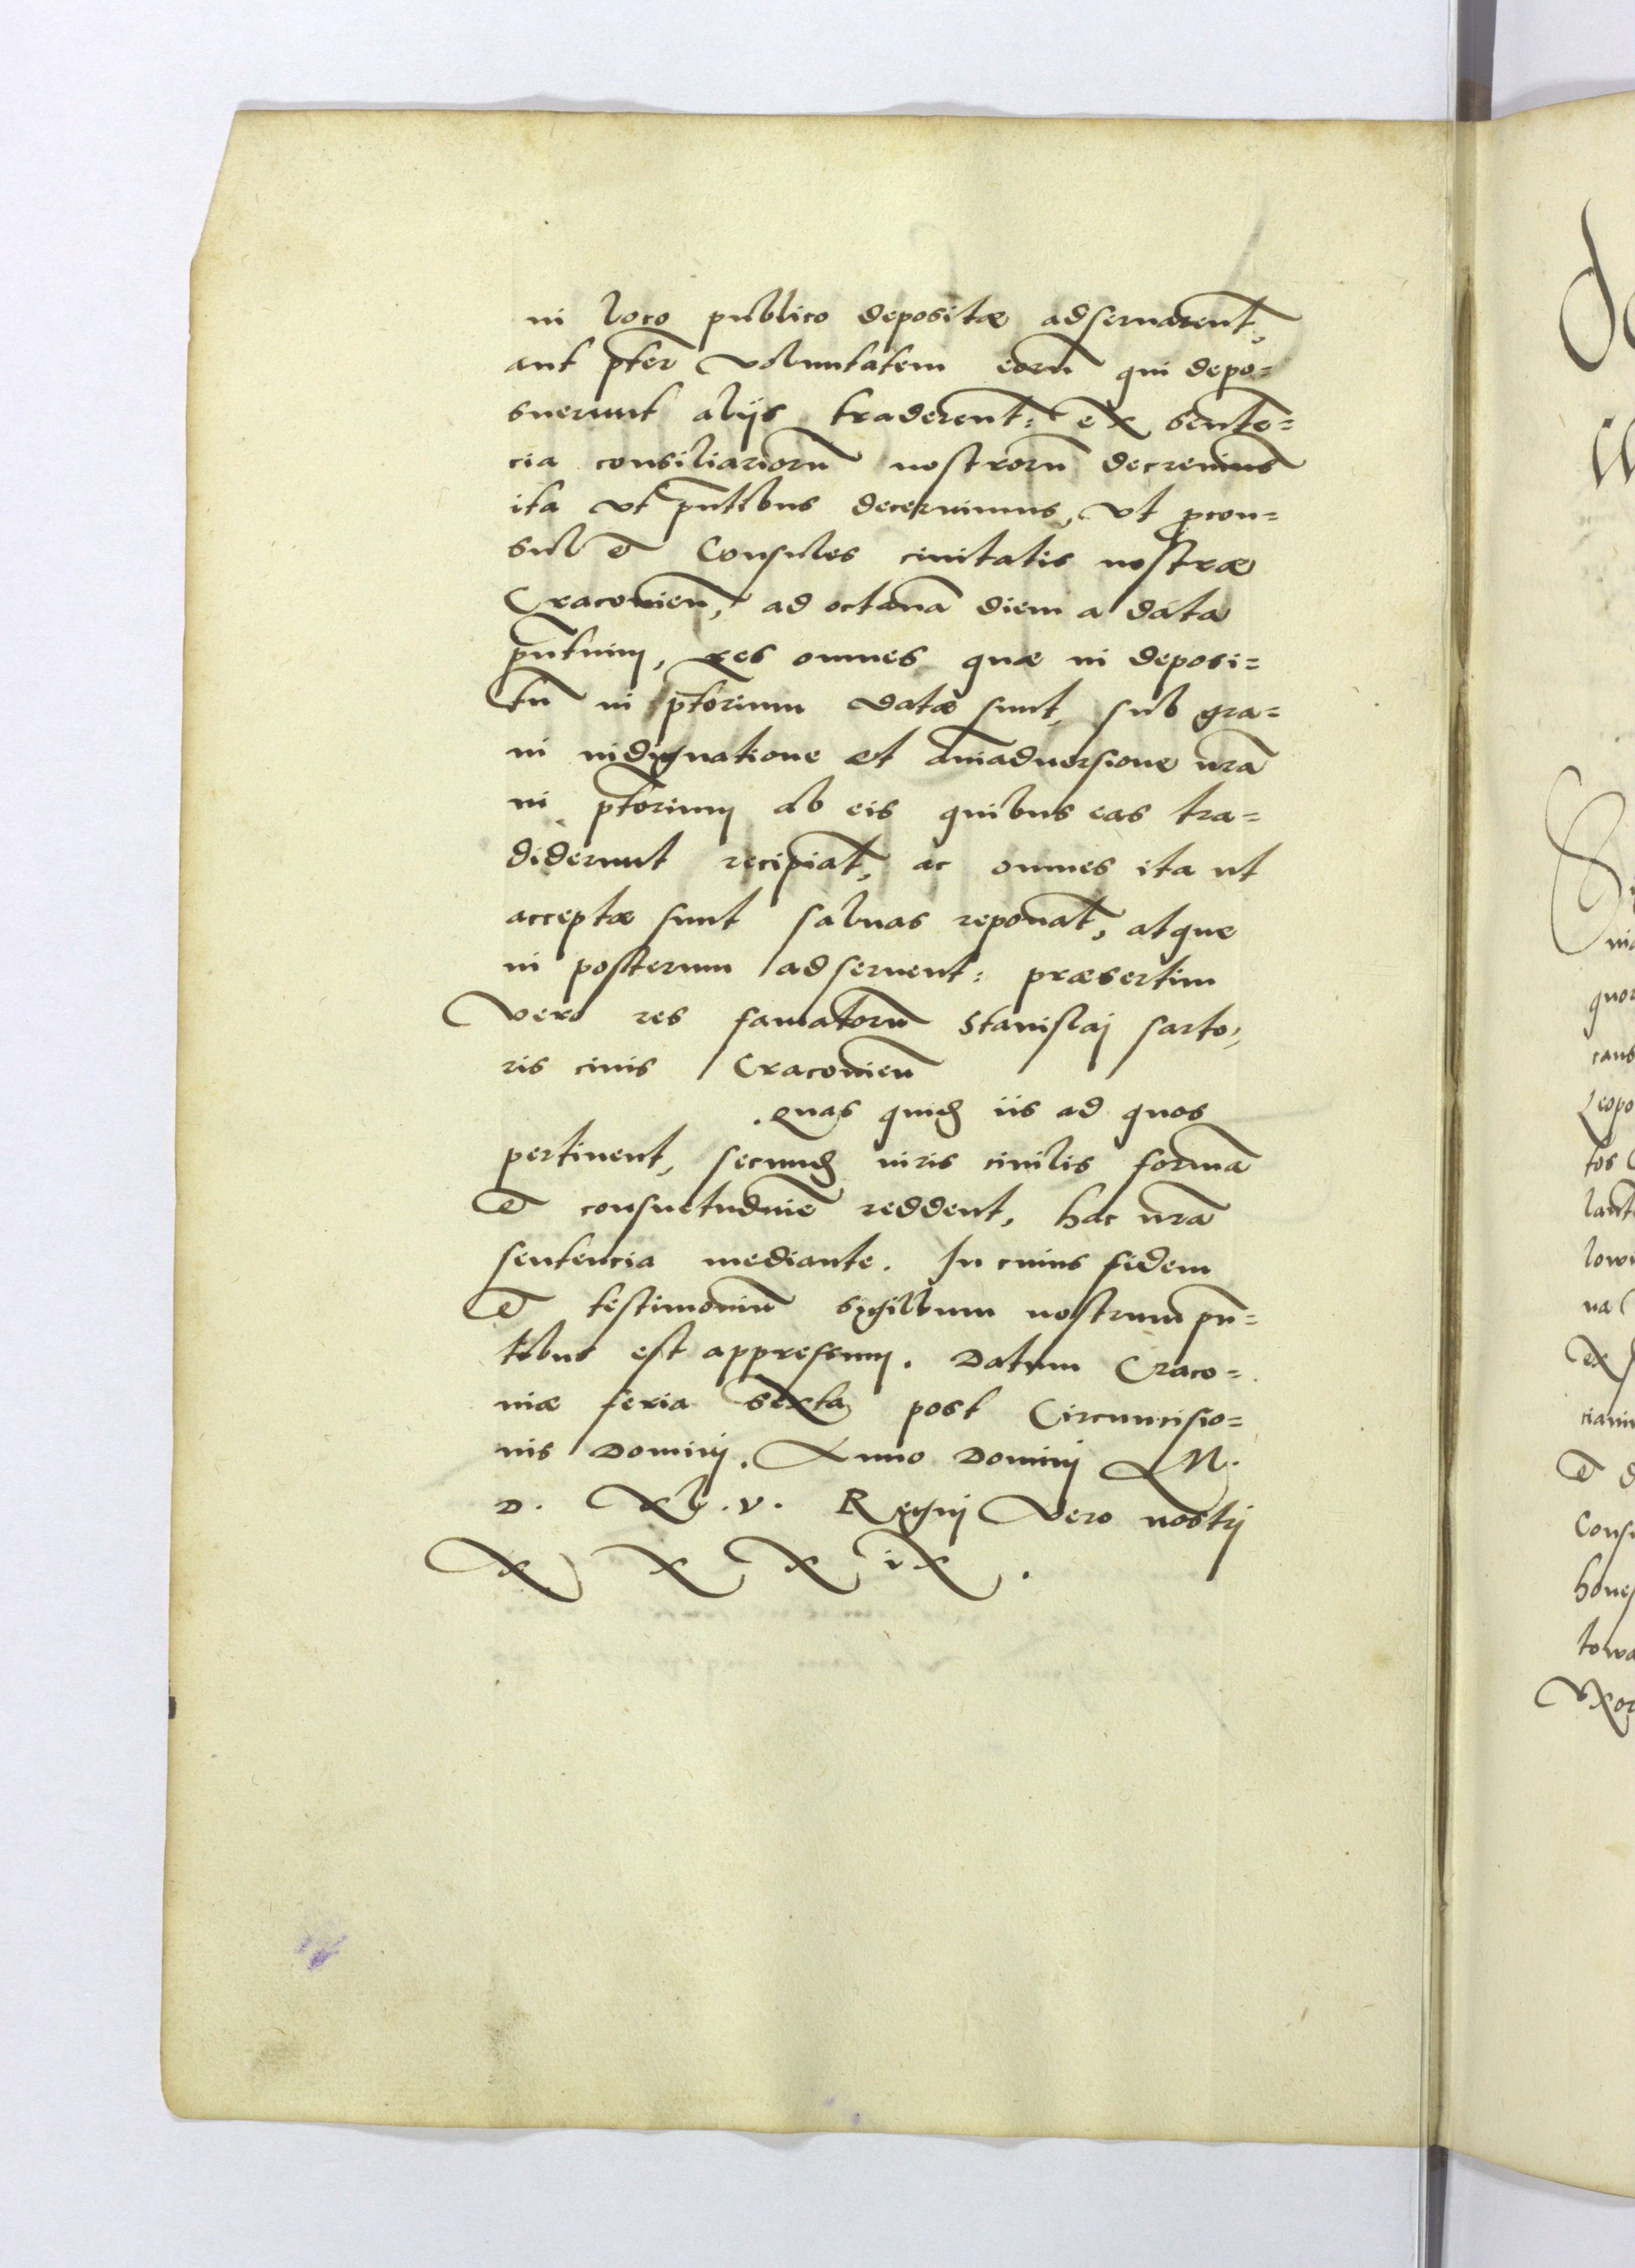 in loco publico depositæ adseruarent̄,
aut p̄ter voluntatem eorū qui depo=
suerunt alijs traderent̄: ex senten=
cia consiliariorū nostrorū decreuimus
ita vt pn̄tibus decernimus, vt ꝓcon=
sul et Consules ciuitatis nostræ
Cracouien̄, ad octauā diem a data
pn̄tium, res omnes quæ in deposi=
tū in p̄torium datæ sunt, sub gra=
ui indignatione et aīaduersione nr̄a
in p̄torium ab eis quibus eas tra=
diderunt recipiāt, ac omnes ita ut
acceptæ sunt saluas reponāt, atque
in posterum adseruent: præsertim
vero res famatorū Stanislaj sarto,
ris ciuis Cracouien̄
quas quid͛ iis ad quos
pertinent, secund͛ iuris ciuilis formā
et consuetudinē reddent, hac nr̄a
sentencia mediante. In cuius fidem
et testimoniū sigillum nostrum pn̄=
tibus est appressum. Datum Craco=
uiæ feria sexta post Circumcisio=
nis Dominj. Anno Dominj M.
D. XL.V. Regnj vero nostrj
XXXIX.
quor
caus
Leopo
tos
lant
ua
ex
Consu
hones
towa
vxor